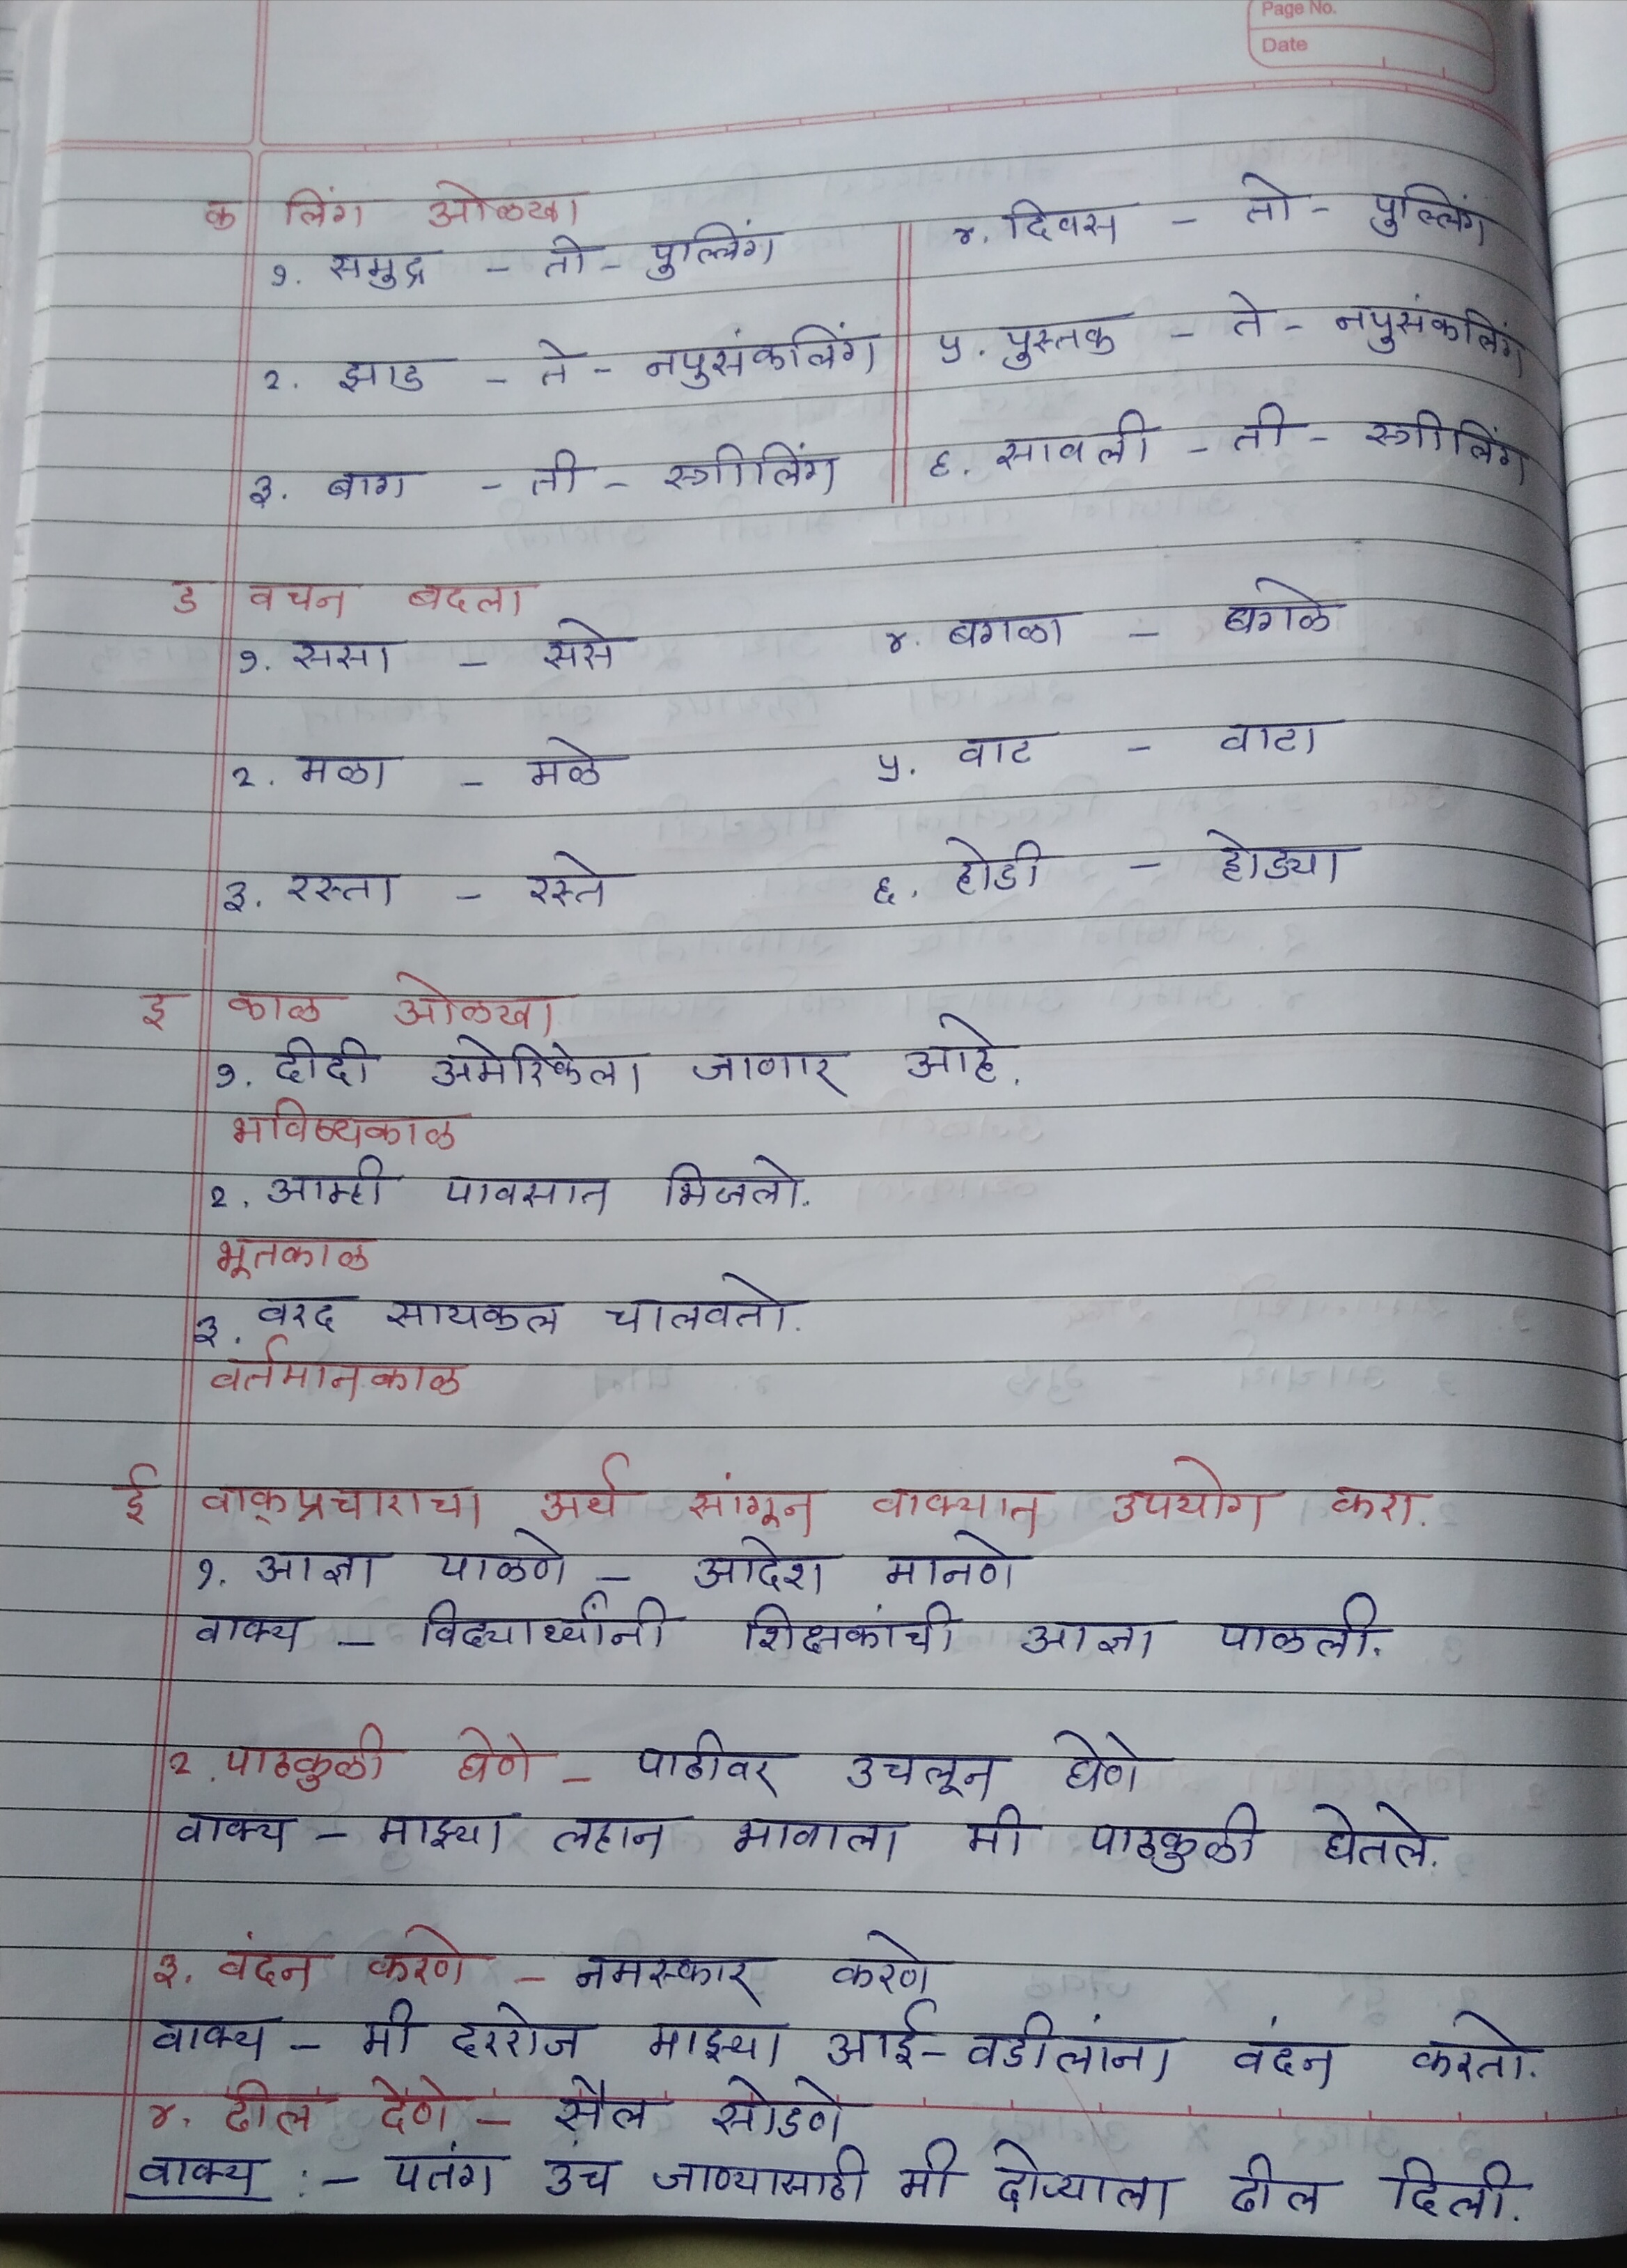 Page No.
Date
क लिंग ओळखा
१. समुद्र - तो - पुल्लिंग
२. झाड - ते - नपुसंकलिंग
३. बाग - ती - स्त्रीलिंग
४. दिवस - तो - पुल्लिंग
५. पुस्तक - ते - नपुसंकलिंग
६. सावली - ती - स्त्रीलिंग
ड वचन बदला
१. ससा - ससे
२. मळा - मळे
३. रस्ता - रस्ते
४. बगळा - बगळे
५. वाट - वाटा
६. होडी - होड्या
इ काळ ओळखा
१. दीदी अमेरिकेला जाणार आहे.
भविष्यकाळ
२. आम्ही पावसात भिजलो.
भूतकाळ
३. वरद सायकल चालवतो.
वर्तमानकाळ
ई वाक्प्रचाराचा अर्थ सांगून वाक्यात उपयोग करा.
१. आज्ञा पाळणे - आदेश मानणे
वाक्य - विद्यार्थ्यांनी शिक्षकांची आज्ञा पाळली.
२. पाठकुळी घेणे - पाठीवर उचलून घेणे
वाक्य - माझ्या लहान भावाला मी पाठकुळी घेतले.
३. वंदन करणे - नमस्कार करणे
वाक्य - मी दररोज माझ्या आई-वडीलांना वंदन करतो.
४. ढील देणे - सैल सोडणे
वाक्य :- पतंग उंच जाण्यासाठी मी दोऱ्याला ढील दिली.